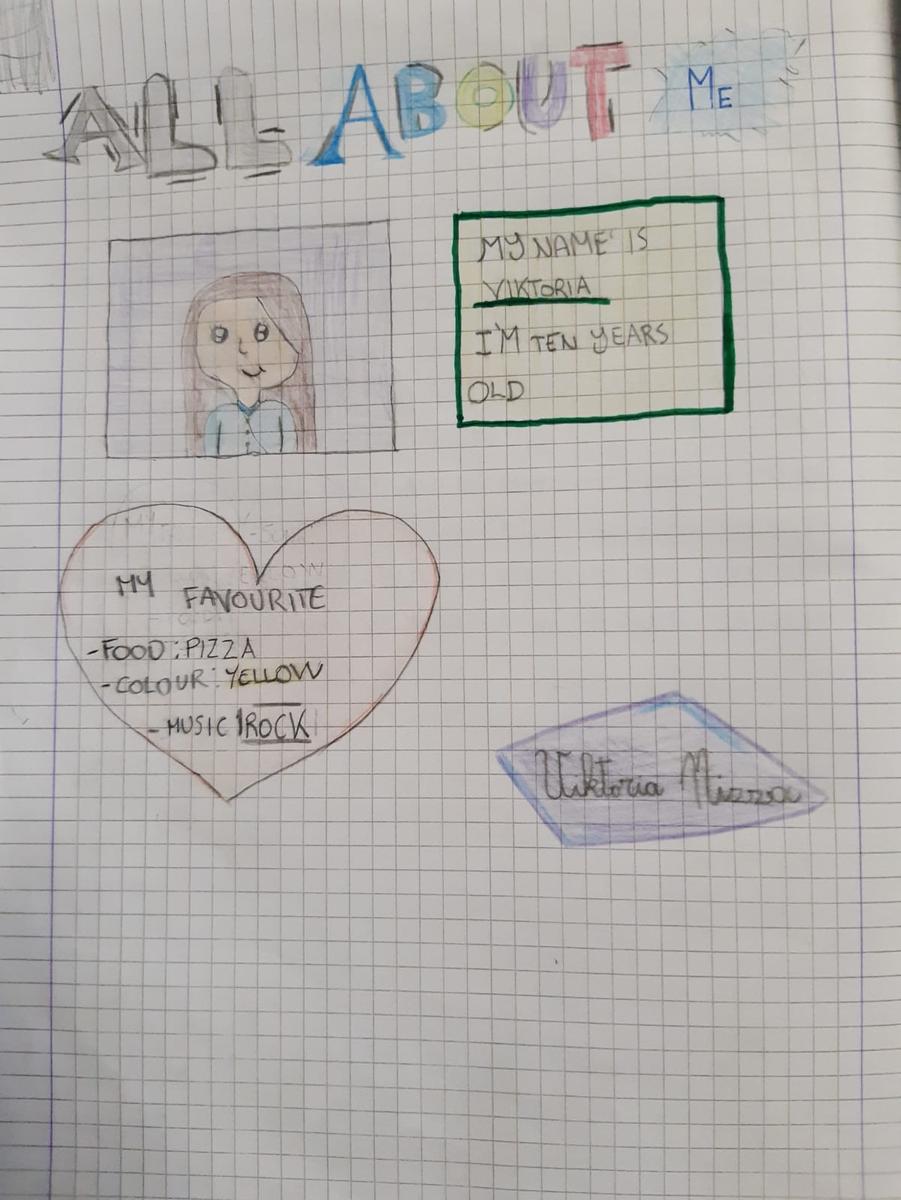 ALL ABOUT ME
MY NAME IS
VIKTORIA
I'M TEN YEARS
OLD
MY FAVOURITE
-FOOD: PIZZA
-COLOUR: YELLOW
-MUSIC ROCK
Viktoria Mizza